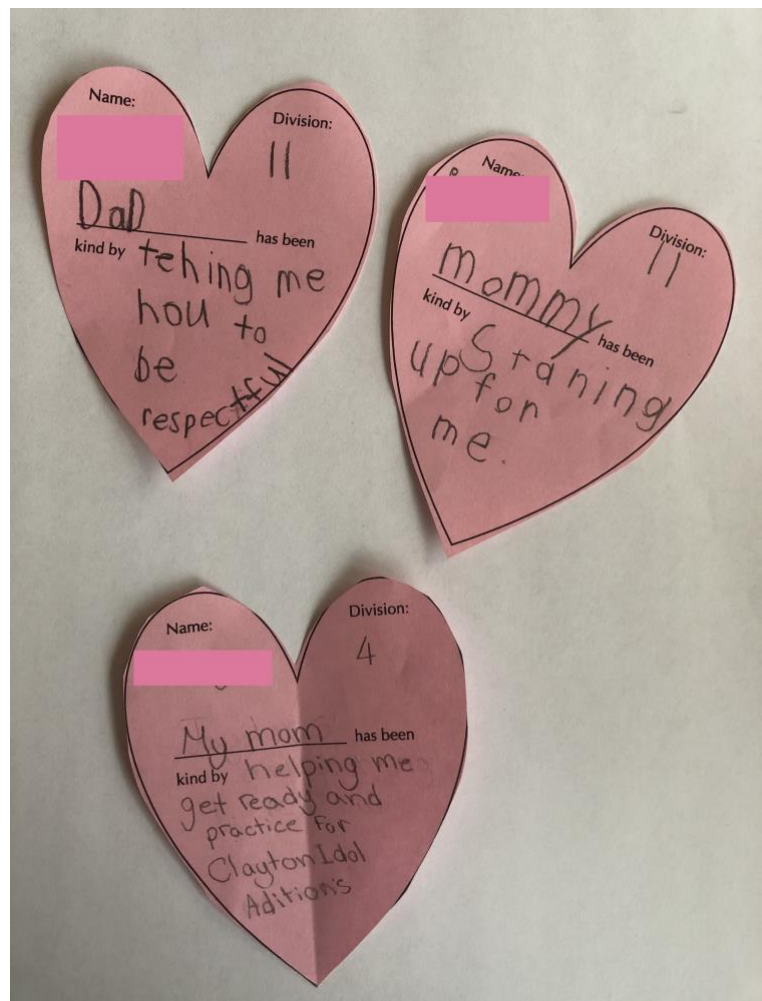 Name:
Division:
11
DaD has been
kind by tehing me
hou to
be
respectful
Name:
Division:
11
mommy has been
kind by Straning
up for
me.
Name:
Division:
4
My mom has been
kind by helping me
get ready and
practice For
Clayton Idol
Aditions